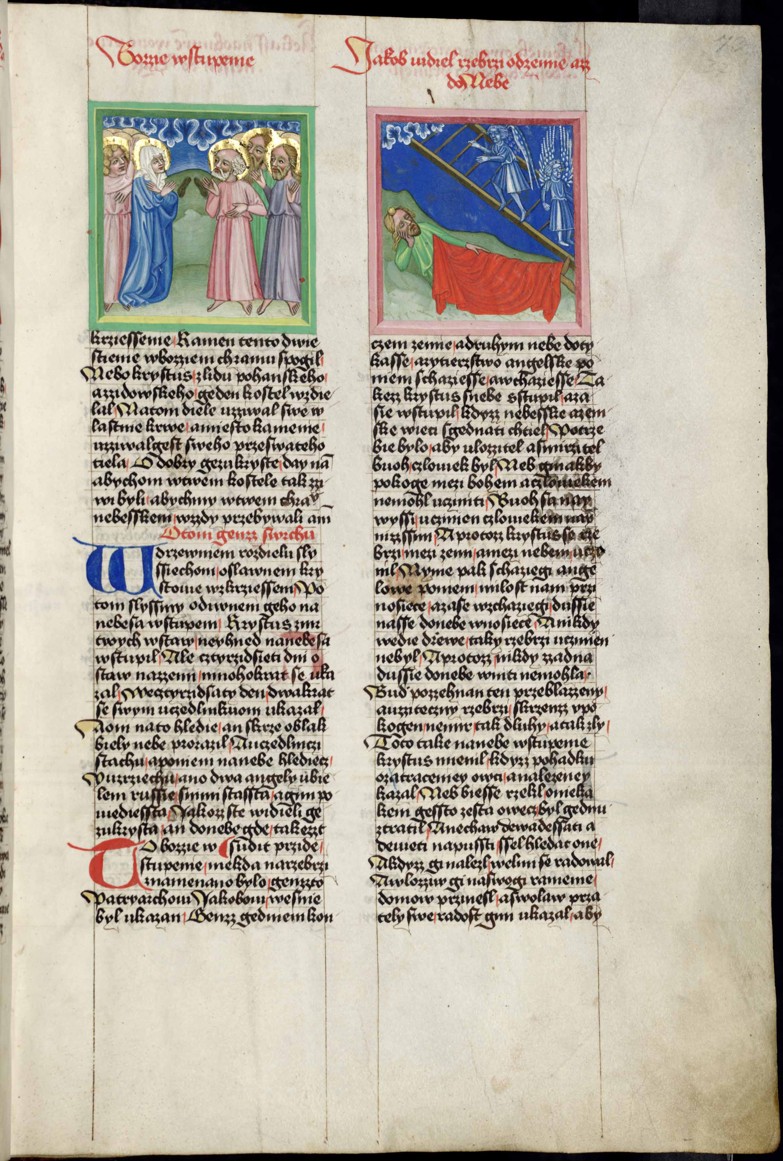 Borzie wstupenie
Jakob uidiel rzebrzi odzemie az
do Nebe
krziessenie Kamen tento dwie
stienie wborziem chramu spogil
Nebo krystus zlidu pohanskeho
azzidowskeho geden kostel wzdie
lal Natom diele uzzuwal swe w
lastnie krwe amiesto kamenie
uzzuwalgest sweho przeswateho
tiela O dobry gezu kryste day na
abychom wtwem kostele tak zzi
wi byli abychmy wtwem chra
nebesskem wzzdy przebywali am
Otom genzz swrchu
Wdrzewniem rozdielu sly
ssiechom oslawnem kry
stowie wzkrziesseni Po
tom slyssmy odiwnem geho na
nebesa wstupeni Krystus zmr
twych wstaw neyhned nanebesa
wstupil Ale cztyrzidsieti dni o
staw nazemi mnohokrat se uka
zal Wecztyrzidsaty den dwakrat
se swym uczedlnikuom ukazal
Aom nato hledie an skrze oblak
biely nebe prorazil Auczedlnici
stachu apomem nanebe hlediec
Vuzrziechu ano dwa angely ubie
lem russie snimi stassta agim po
wiediessta Jakozz ste widieli ge
zukrysta an donebe gde takezzt
To borzie w sudit przide
stupenie niekda narzebrzi
znamenano bylo genzzto
Patryarchowi Jakobowi wesnie
byl ukazan Genzz gedniem kon
czem zemie adruhym nebe doty
kasse arytierzstwo angelske po
niem schaziesse awchaziesse Ta
kezz krystus snebe sstupil aza
sie wstupil kdyzz nebesske azem
ske wieci sgednati chtiel Potrze
bie bylo aby ulozzitel asmirzitel
buoh czlowiek byl Neb ginakby
pokoge mezi bohem aczlowiekem
nemohl uczniti Buoh sa nay
wyssi uczinien czlowiekem nay
nizssim Aprotozz krystus se rze
brzi mezi zemi amezi nebem uczi
nil Nynie pak schaziegi ange
lowe poniem milost nam przi
nosiece azase wzchaziegi dussie
nasse donebe wnosiece Anikdy
wedie drzewe taky rzebrzi uczinien
nebyl Aprotozz nikdy zzadna
dussie donebe wniti nemohla
Bud pozzehnan ten przeblazzeny
auzziteczny rzebrzi skrzenzz wpo
kogen nenie tak dluhy atak zly
Toto take nanebe wstupenie
krystus mienil kdyzz pohadku
oztraceney owci analezeney
kazal Neb biesse rzekl omeka
kem gessto zesta owec byl gednu
ztratil Anechaw dewadessati a
dewieti napussti ssel hledat one
Akdyzz gi nalezl welmi se radowal
Awlozziw gi naswogi ramenie
domow przinesl aswolaw przia
tely swe radost gim ukazal aby